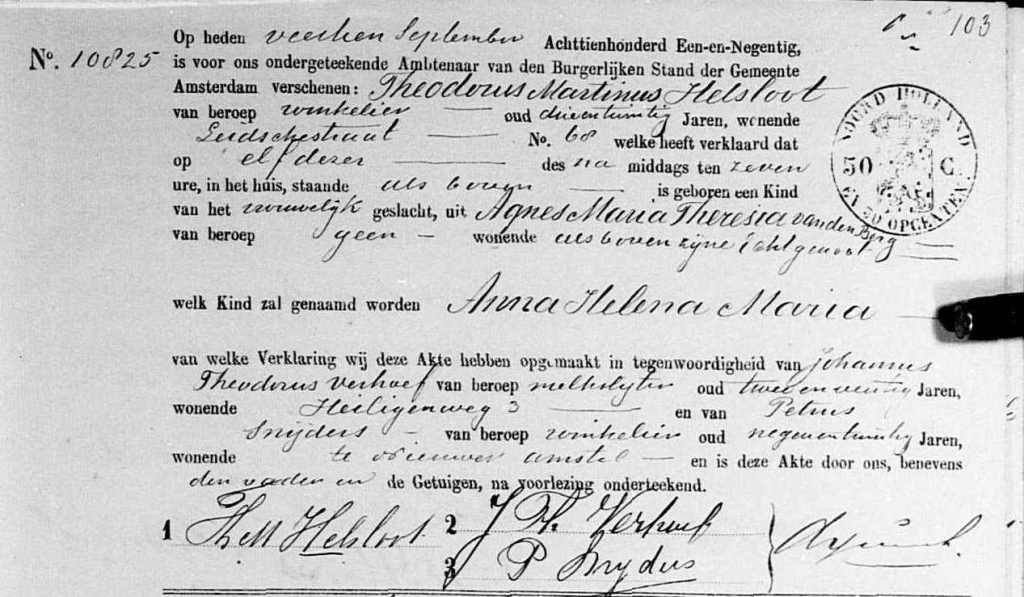 103
No. 10825
Op heden veertien September Achttienhonderd Een-en-Negentig,
is voor ons ondergeteekende Ambtenaar van den Burgerlijken Stand der Gemeente
Amsterdam verschenen: Theodorus Martinus Helsloot
van beroep winkelier oud drieentwintig Jaren, wonende
Leidschestraat No. 68 welke heeft verklaard dat
op elf dezer des na middags ten zeven
ure, in het huis, staande als boven is geboren een Kind
van het vrouwelijk geslacht, uit Agnes Maria Theresia van den Berg
van beroep geen wonende als boven zijne Echtgenoot
welk Kind zal genaamd worden Anna Helena Maria
van welke Verklaring wij deze Akte hebben opgemaakt in tegenwoordigheid van Johannes
Theodorus Verhoef van beroep melkslyter oud Jaren,
wonende Heiligenweg 3 en van Petrus
Snijders van beroep winkelier oud negenentwintig Jaren,
wonende te Nieuwer Amstel en is deze Akte door ons, benevens
den vader en de Getuigen, na voorlezing onderteekend.
1 Helsloot 2 J Th. Verhoef
3 P Snijders
NOORD HOLLAND
50 C
EN 30 OPCENTEN.